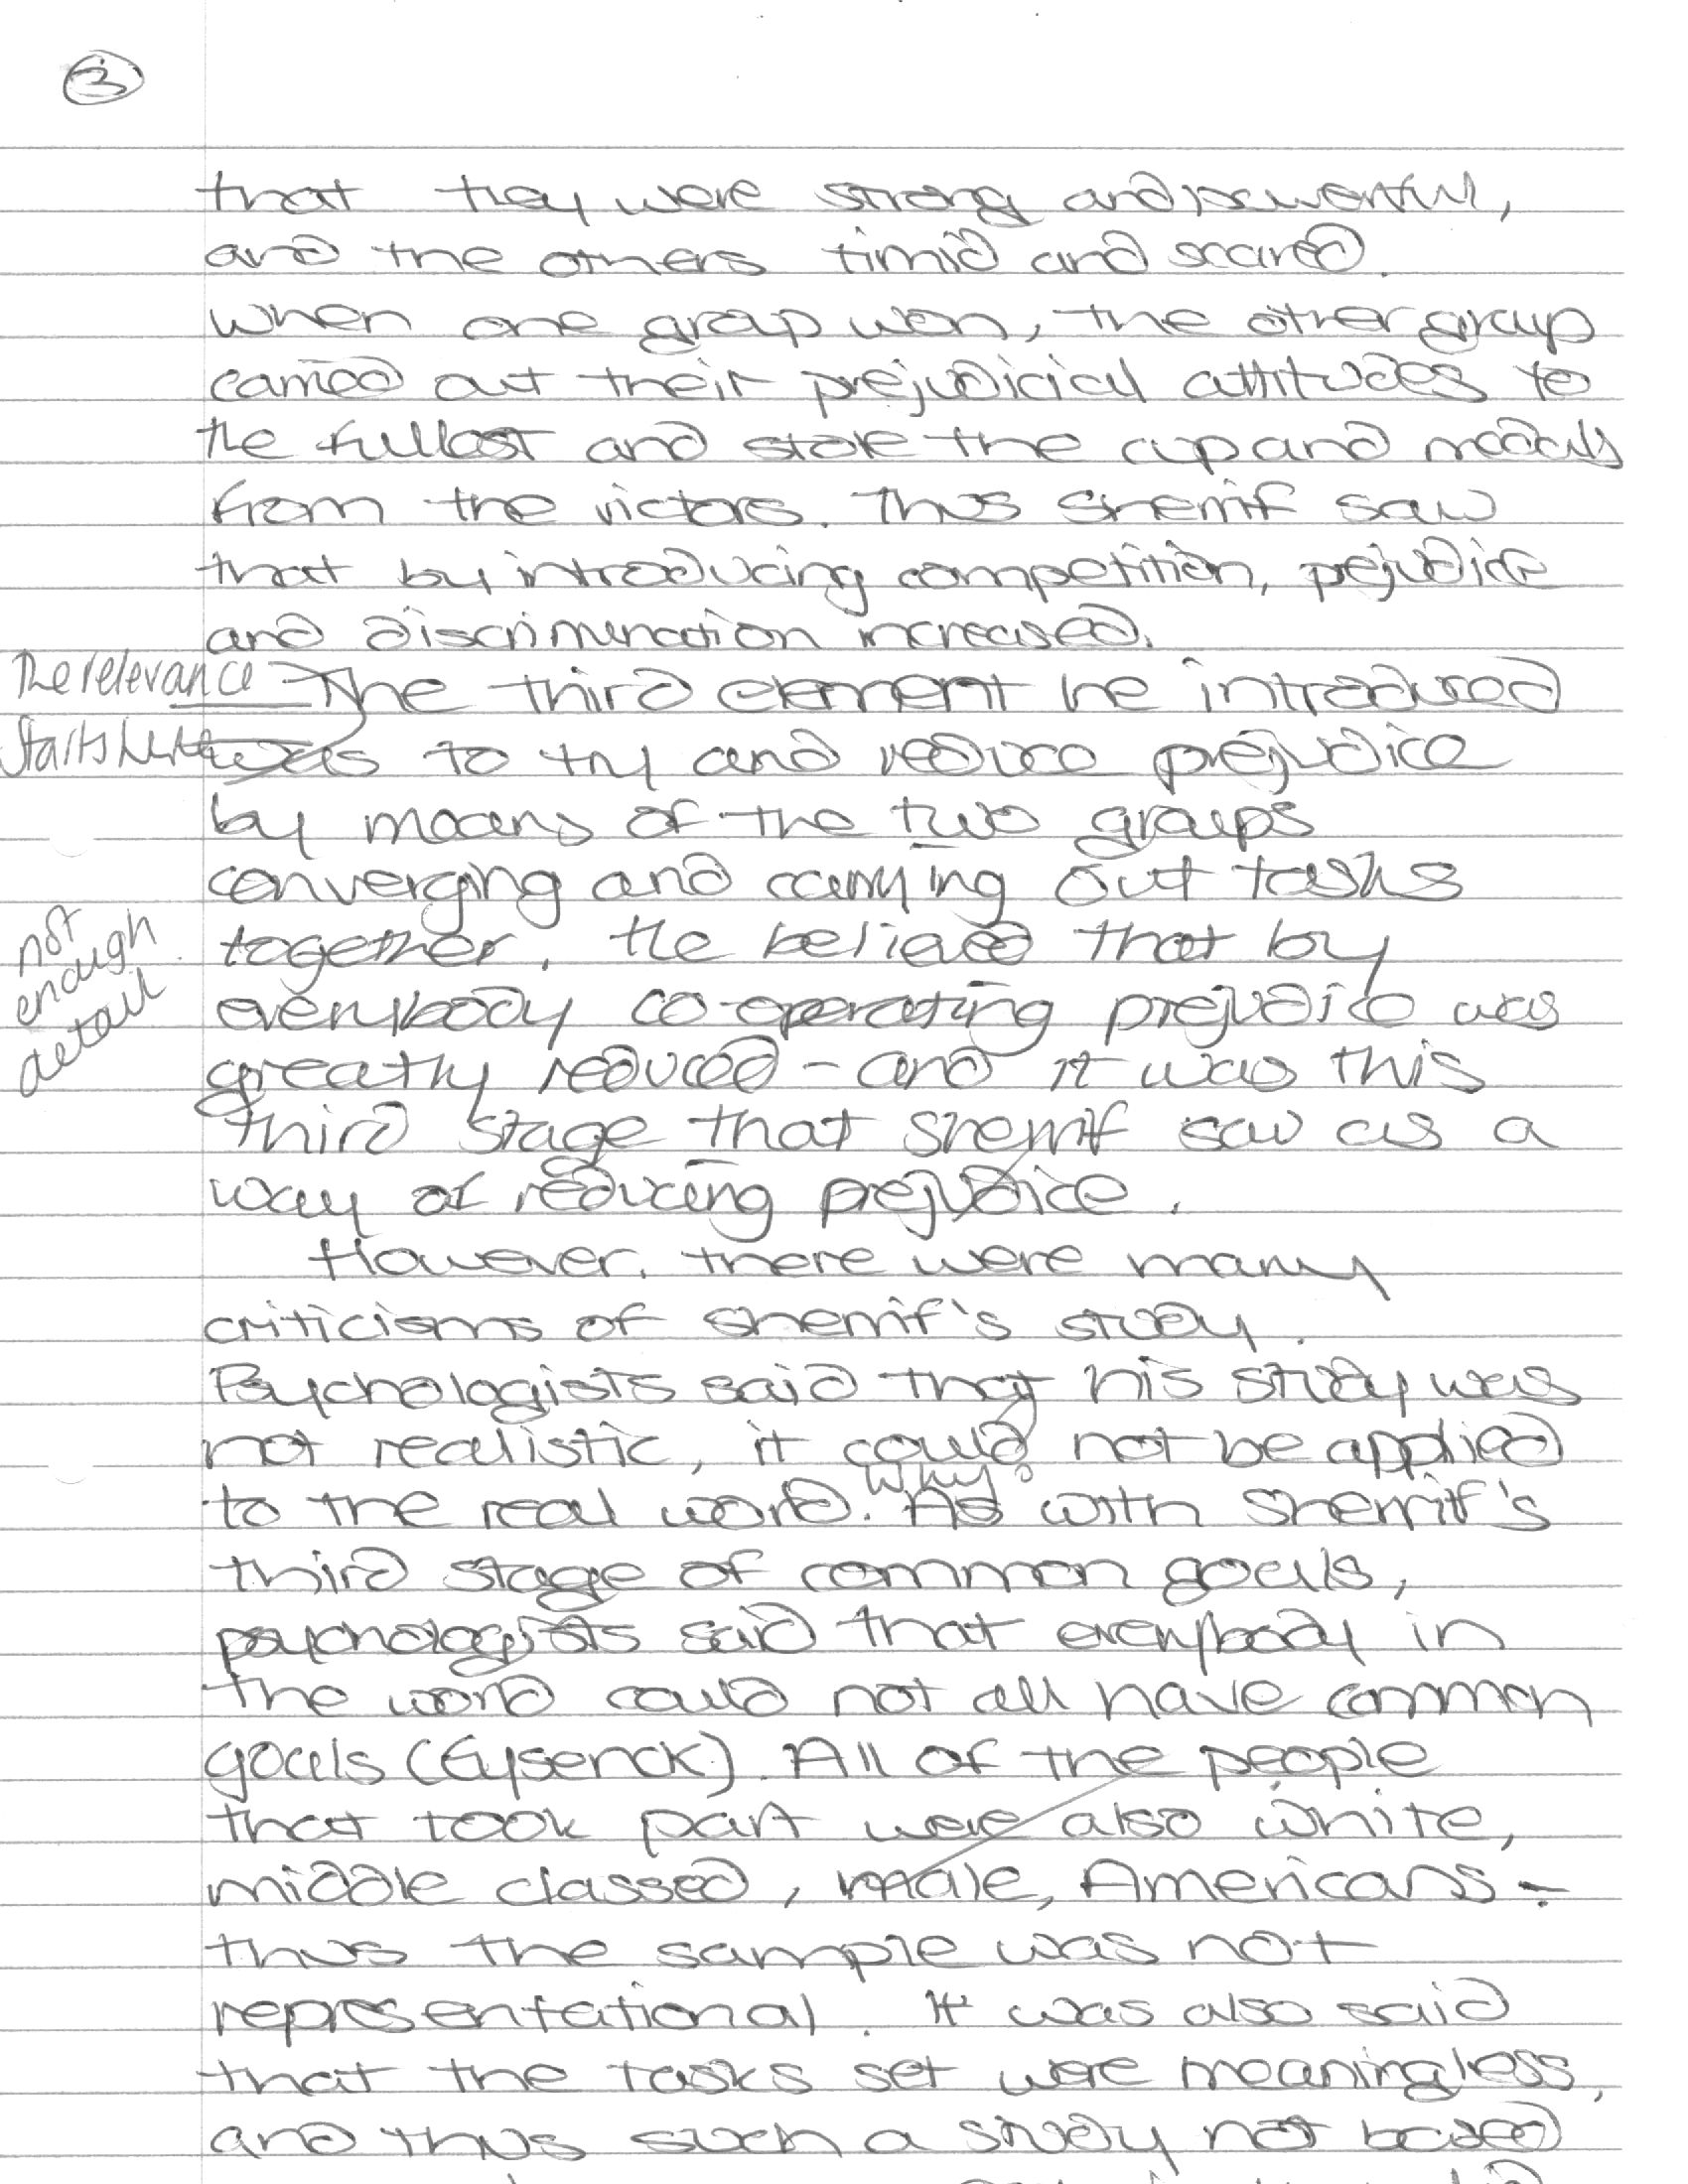 3
that they were strong and powerful,
and the others timid and scared.
When one group won, the other group
carried out their prejudicial attitudes to
the fullest and stole the cup and medals
from the victors. Thus Sherrif saw
that by introducing competition, prejudice
and discrimination increased.
The relevance
starts here
The third element he introduced
was to try and reduce prejudice
by means of the two groups
converging and carrying out tasks
not
enough
detail
together. He believed that by
everybody co-operating prejudice was
greatly reduced - and it was this
third stage that Sherrif saw as a
way of reducing prejudice.
However, there were many
criticisms of Sherrif's study.
Psychologists said that his study was
not realistic, it could not be applied
Why?
to the real world. As with Sherrif's
third stage of common goals,
psychologists said that everybody in
the world could not all have common
goals (Eysenck). All of the people
that took part were also white,
middle classed, male, Americans -
thus the sample was not
representational. It was also said
that the tasks set were meaningless,
and thus such a study not based